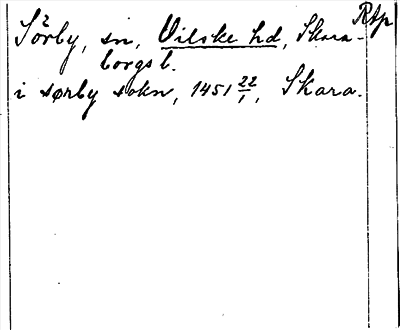 Sörby, sn, Vilske hd, Skara- Rtp
borgs l.
i sørby sokn, 1451 22/1, Skara.